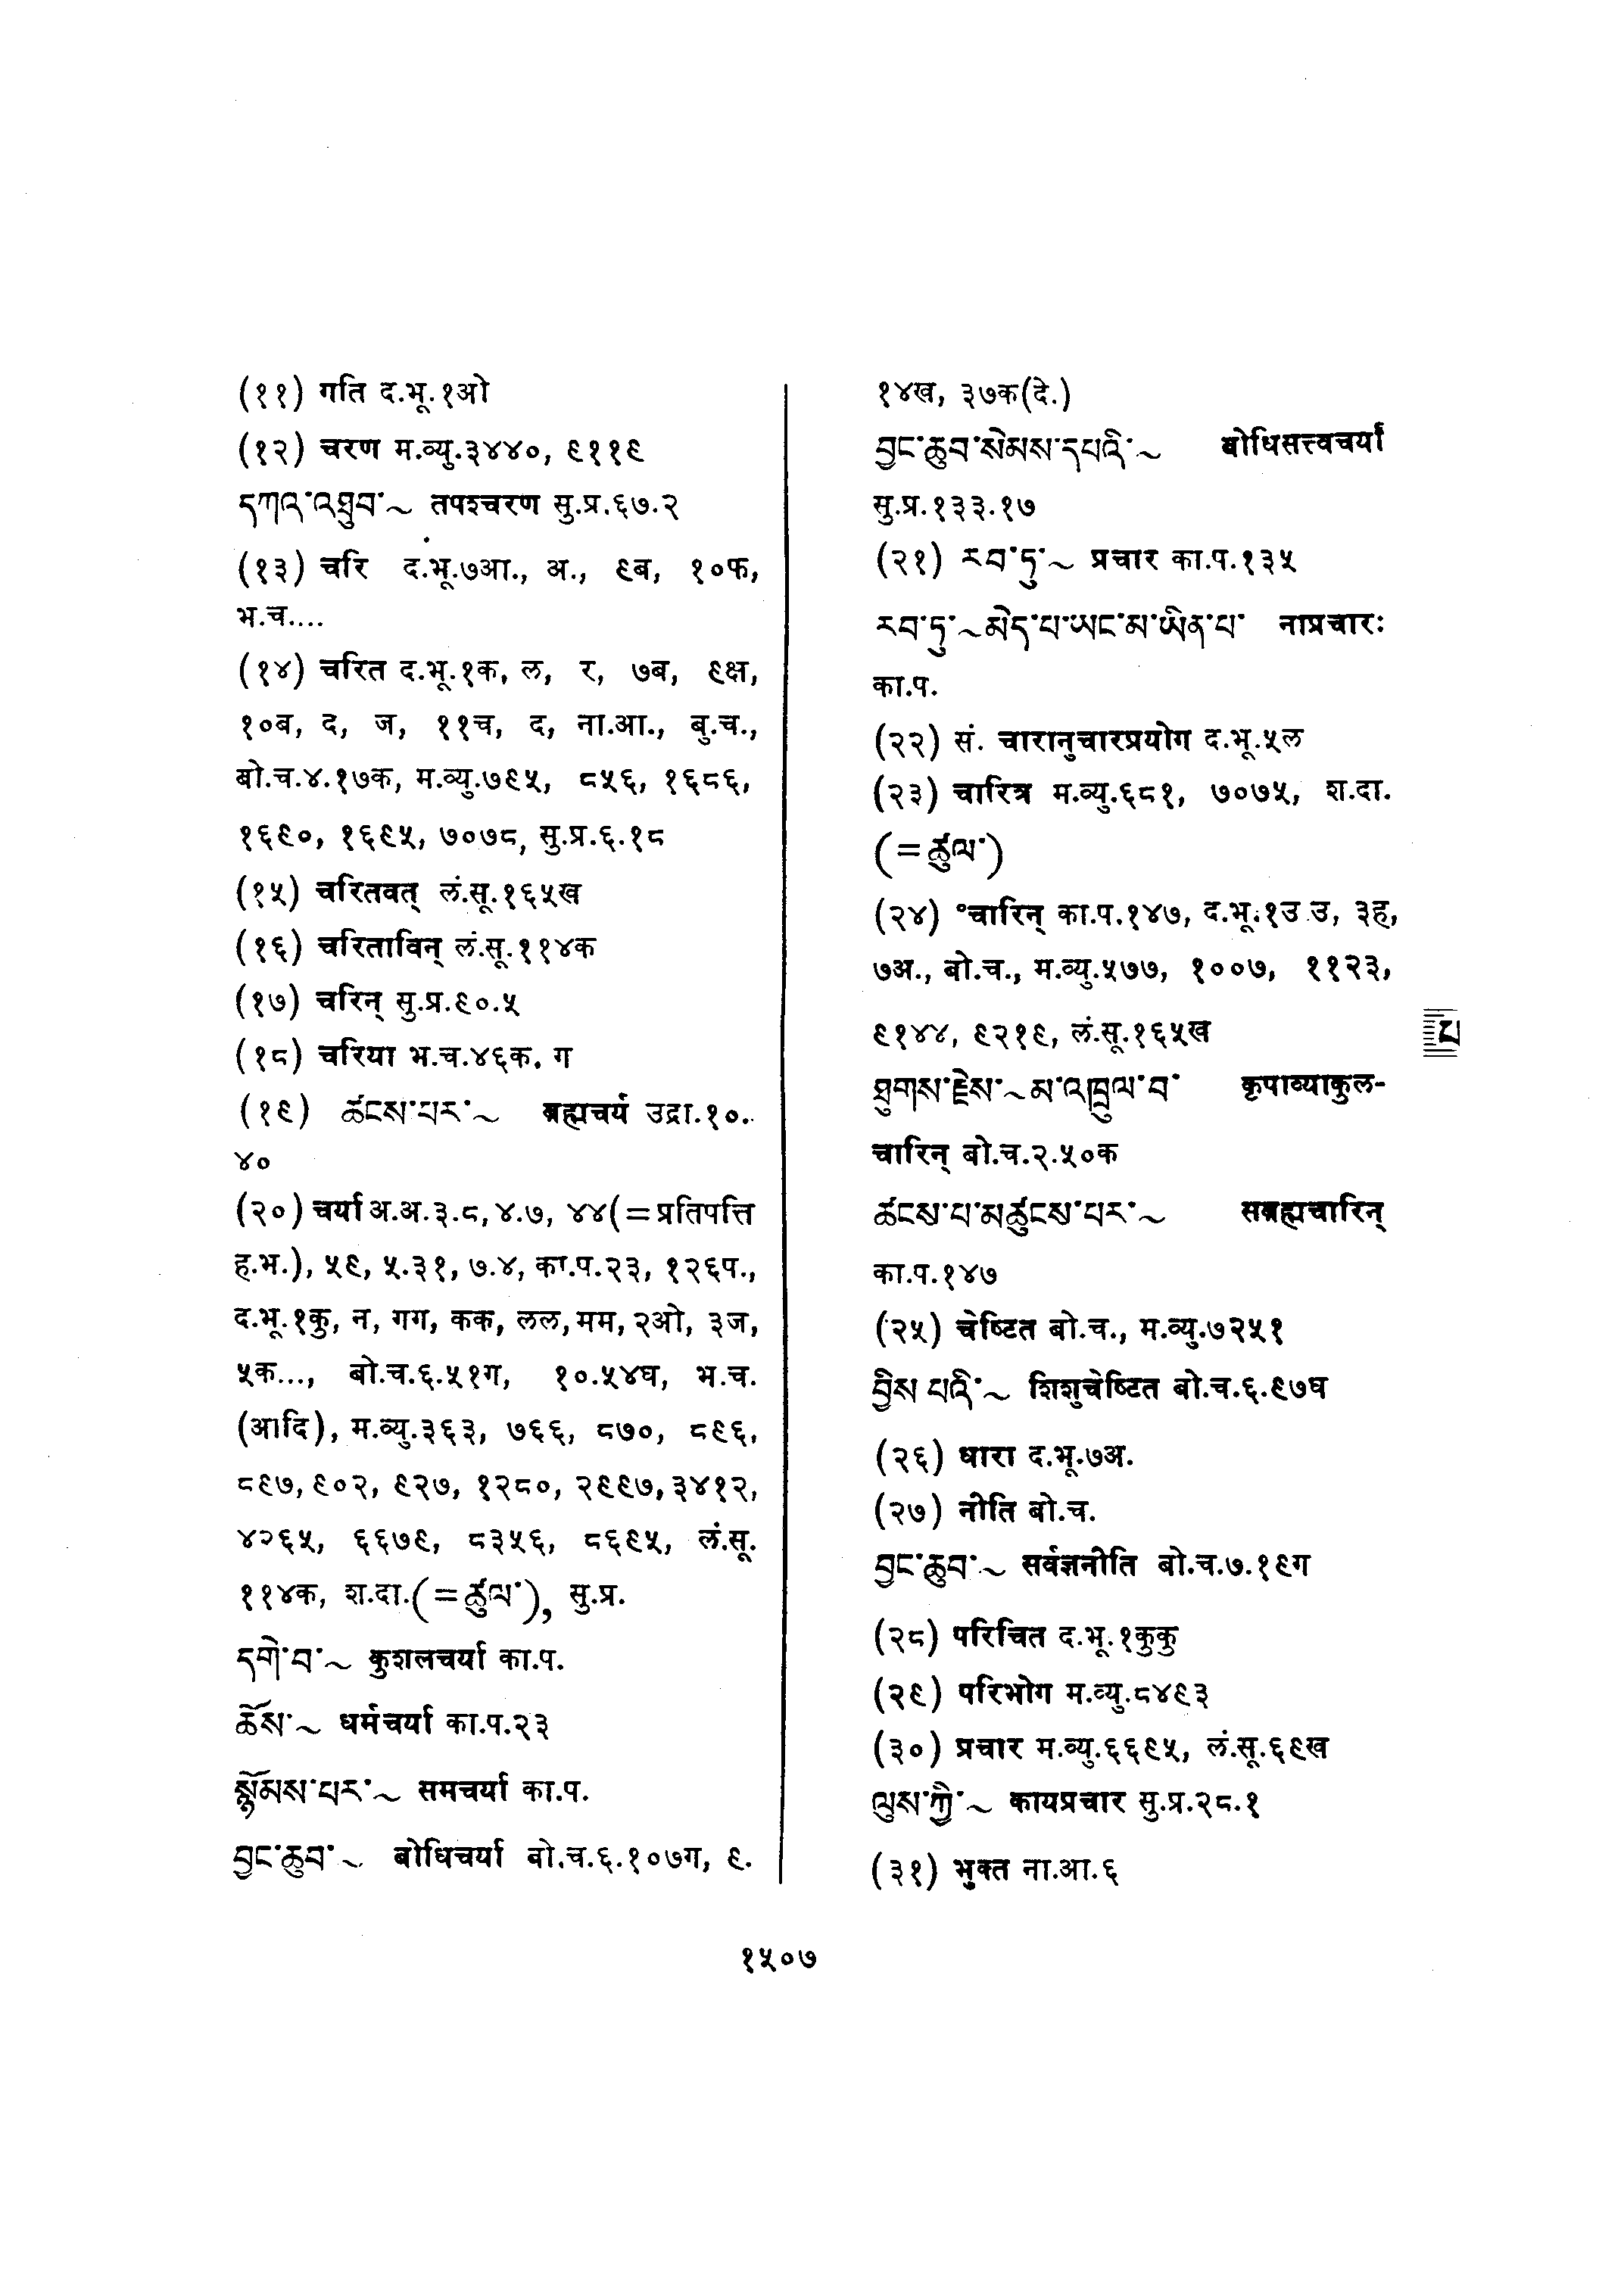 (११) गति द.भू.१ओ
(१२) चरण म.व्यु.३४४०, ९११९
དཀའ་འཐུབ་~ तपश्चरण सु.प्र.६७.२
(१३) चरि द.भू.७आ., अ., ९ब, १०फ,
भ.च....
(१४) चरित द.भू.१क, ल, र, ७ब, ९क्ष,
१०ब, द, ज, ११च, द, ना.आ., बु.च.,
बो.च.४.१७क, म.व्यु.७९५, ८५६, १६८६,
१६९०, १६९५, ७०७८, सु.प्र.६.१८
(१५) चरितवत् लं.सू.१६५ख
(१६) चरिताविन् लं.सू.११४क
(१७) चरिन् सु.प्र.९०.५
(१८) चरिया भ.च.४६क, ग
(१९) ཚངས་པར་~ ब्रह्मचर्य उद्रा.१०.
४०
(२०) चर्या अ.अ.३.८, ४.७, ४४(=प्रतिपत्ति
ह.भ.), ५९, ५.३१, ७.४, का.प.२३, १२६प.,
द.भू.१कु, न, गग, कक, लल, मम, २ओ, ३ज,
५क..., बो.च.६.५१ग, १०.५४घ, भ.च.
(आदि), म.व्यु.३६३, ७६६, ८७०, ८९६,
८९७, ९०२, ९२७, १२८०, २९९७, ३४१२,
४२६५, ६६७९, ८३५६, ८६९५, लं.सू.
११४क, श.दा.(=ཚུལ་), सु.प्र.
དགེ་བ་~ कुशलचर्या का.प.
ཆོས་~ धर्मचर्या का.प.२३
སྙོམས་པར་~ समचर्या का.प.
བྱང་ཆུབ་~ बोधिचर्या बो.च.६.१०७ग, ९.
१४ख, ३७क(दे.)
བྱང་ཆུབ་སེམས་དཔའི་~ बोधिसत्त्वचर्या
सु.प्र.१३३.१७
(२१) རབ་ཏུ་~ प्रचार का.प.१३५
རབ་ཏུ་~མེད་པ་ཡང་མ་ཡིན་པ་ नाप्रचारः
का.प.
(२२) सं. चारानुचारप्रयोग द.भू.५ल
(२३) चारित्र म.व्यु.६८१, ७०७५, श.दा.
(=ཚུལ་)
(२४) °चारिन् का.प.१४७, द.भू.१उ उ, ३ह,
७अ., बो.च., म.व्यु.५७७, १००७, ११२३,
९१४४, ९२१९, लं.सू.१६५ख
པ
ཐུགས་རྗེས་~མ་འཁྲུལ་བ་ कृपाव्याकुल-
चारिन् बो.च.२.५०क
ཚངས་པ་མཚུངས་པར་~ सब्रह्मचारिन्
का.प.१४७
(२५) चेष्टित बो.च., म.व्यु.७२५१
བྱིས པའི་~ शिशुचेष्टित बो.च.६.९७घ
(२६) धारा द.भू.७अ.
(२७) नीति बो.च.
བྱང་ཆུབ་~ सर्वज्ञनीति बो.च.७.१९ग
(२८) परिचित द.भू.१कुकु
(२९) परिभोग म.व्यु.८४९३
(३०) प्रचार म.व्यु.६६९५, लं.सू.६९ख
ལུས་ཀྱི་~ कायप्रचार सु.प्र.२८.१
(३१) भुक्त ना.आ.६
१५०७